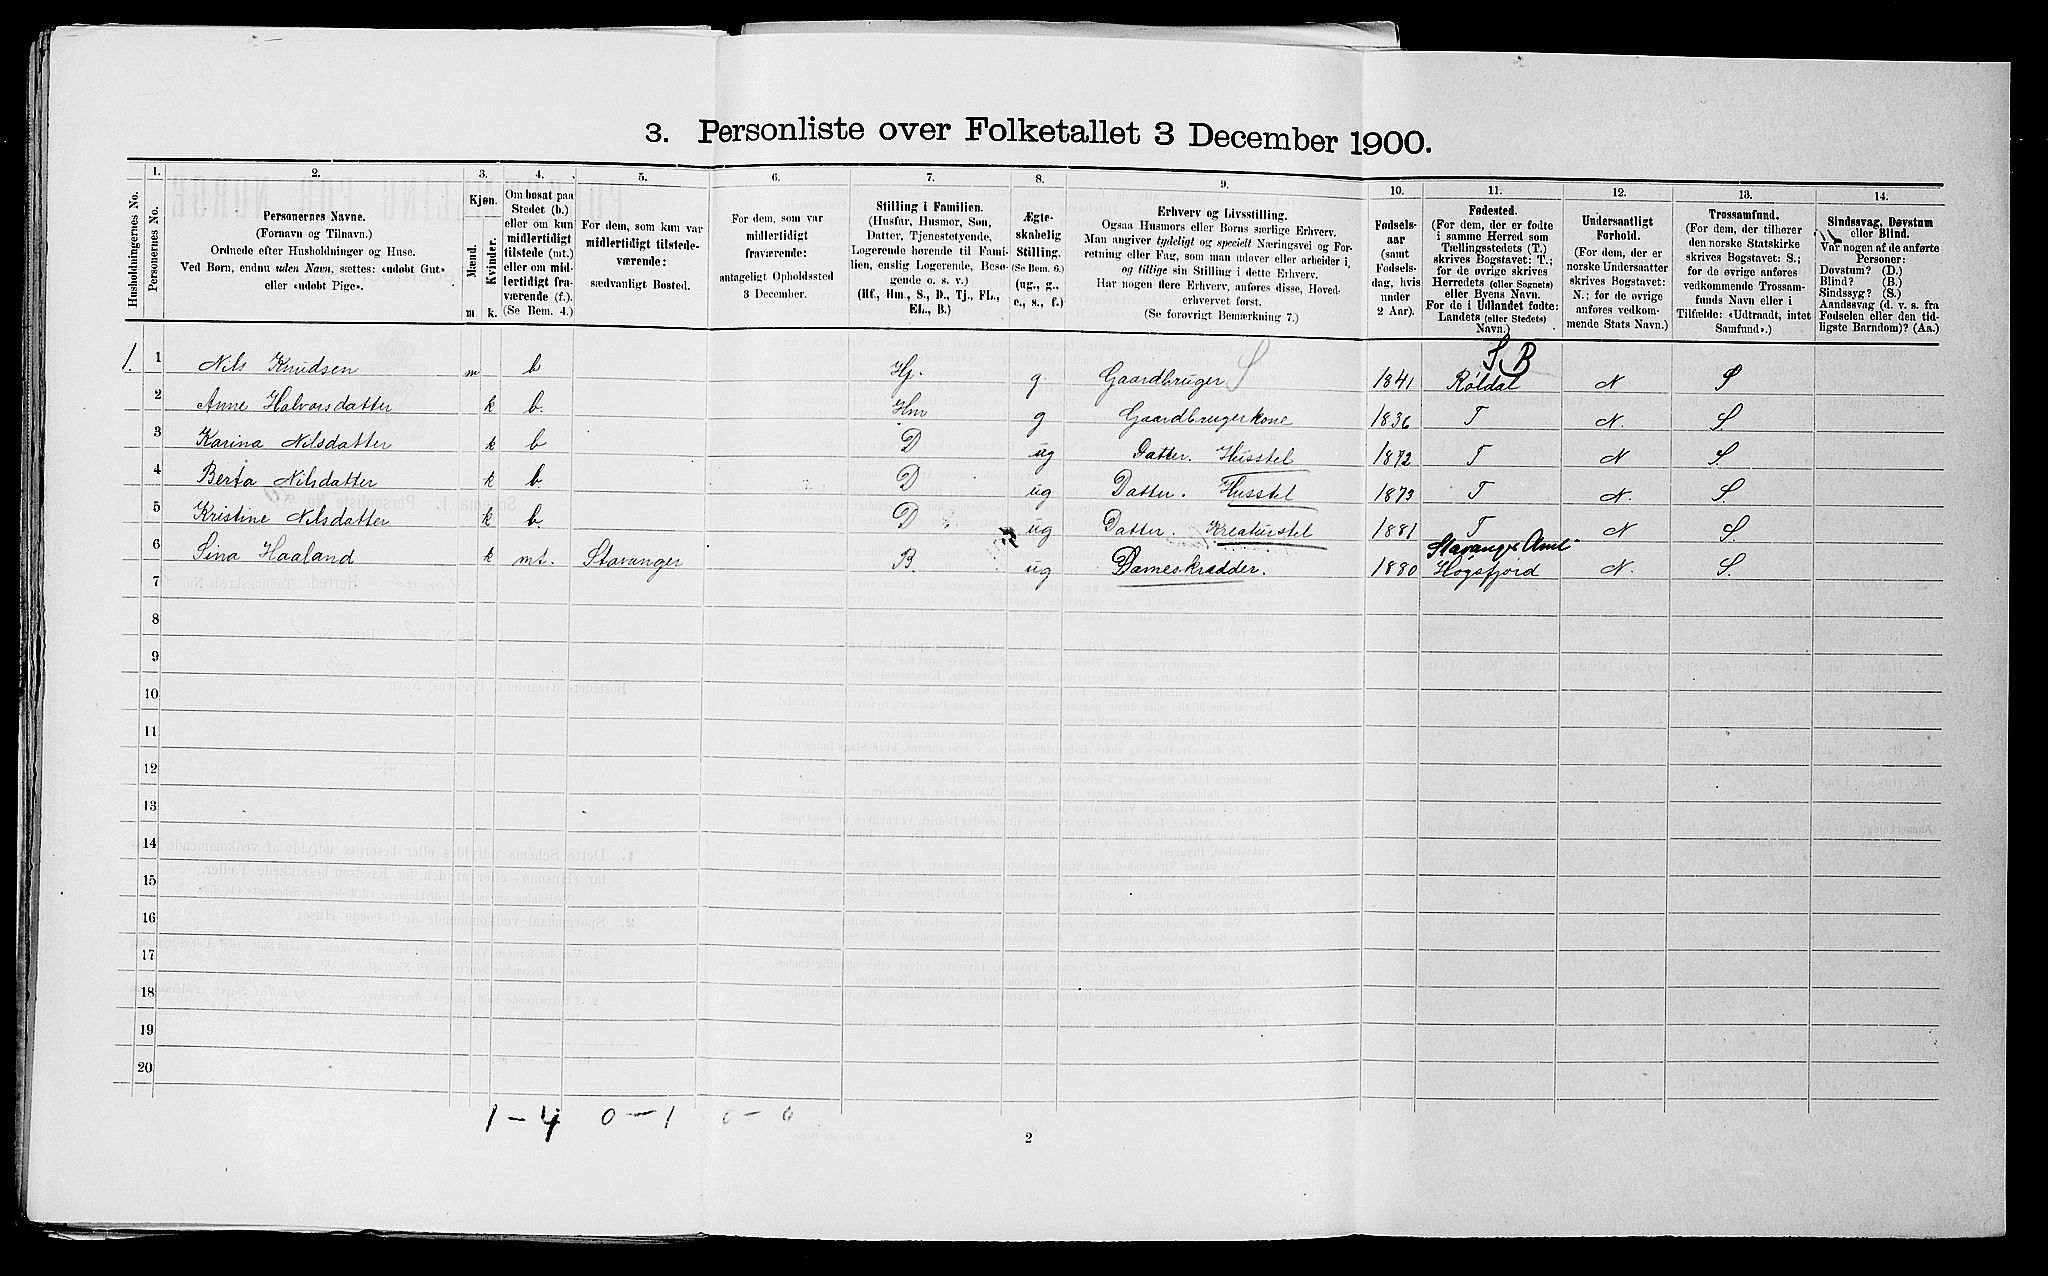 3. Personliste over Folketallet 3 December 1900.
Husholdningernes No.
1.
Personernes No.
2.
Personernes Navne.
(Fornavn og Tilnavn.)
Ordnede efter Husholdninger og Huse.
Ved Børn, endnu uden Navn, sættes: «udøbt Gut»
eller «udøbt Pige».
3.
Kjøn.
Mænd.
Kvinder.
m
k.
4.
Om bosat paa
Stedet (b.)
eller om kun
midlertidigt
tilstede (mt.)
eller om mid-
lertidigt fra-
værende (f.).
(Se Bem. 4.)
5.
For dem, som kun var
midlertidigt tilstede-
værende:
sædvanligt Bosted.
6.
For dem, som var
midlertidigt
fraværende:
antageligt Opholdssted
3 December.
7.
Stilling i Familien.
(Husfar, Husmor, Søn,
Datter, Tjenestetyende,
Logerende hørende til Fami-
lien, enslig Logerende, Besø-
gende o. s. v.)
(Hf., Hm., S., D., Tj., FL.,
EL., B.)
8.
Ægte-
skabelig
Stilling.
(Se Bem. 6.)
(ug., g.,
e., s., f.)
9.
Erhverv og Livsstilling.
Ogsaa Husmors eller Børns særlige Erhverv.
Man angiver tydeligt og specielt Næringsvei og For-
retning eller Fag, som man udøver eller arbeider i,
og tillige sin Stilling i dette Erhverv.
Har nogen flere Erhverv, anføres disse, Hoved-
erhvervet først.
(Se forøvrigt Bemærkning 7.)
10.
Fødsels-
aar
(samt
Fødsels-
dag, hvis
under
2 Aar).
11.
Fødested.
(For dem, der er fødte
i samme Herred som
Tællingsstedets (T.)
skrives Bogstavet: T.;
for de øvrige skrives
Herredets (eller Sognets)
eller Byens Navn.
For de i Udlandet fødte:
Landets (eller Stedets)
Navn.)
12.
Undersaatligt
Forhold.
(For dem, der er
norske Undersaatter
skrives Bogstavet:
N.; for de øvrige
anføres vedkom-
mende Stats Navn.)
13.
Trossamfund.
(For dem, der tilhører
den norske Statskirke
skrives Bogstavet: S.;
for de øvrige anføres
vedkommende Trossam-
funds Navn eller i
Tilfælde: «Udtraadt, intet
Samfund».)
14.
Sindssvag, Døvstum
eller Blind.
Var nogen af de anførte
Personer:
Døvstum? (D.)
Blind? (B.)
Sindssyg? (S.)
Aandssvag (d. v. s. fra
Fødselen eller den tid-
ligste Barndom)? (Aa.)
S B
1. 1 Nils Knudsen m b Hf. g. Gaardbruger S 1841 Røldal N S
2 Anne Halvorsdatter k b. Hm g Gaardbrugerkone 1836 T N. S.
3 Karina Nilsdatter k b D ug Datter. Husstel 1872 T N S.
4 Berta Nilsdatter k b. D ug Datter. Husstel 1873 T N. S
5 Kristine Nilsdatter k b. D ug Datter. Kreaturstel 1881 T N S
Stavanger Amt
6 Sina Haaland k mt. Stavanger B. ug Dameskrædder. 1880 Høgsfjord N. S.
7
8
9
10
11
12
13
14
15
16
17
18
19
20
1 – 4 0 – 1 0 – 0
2